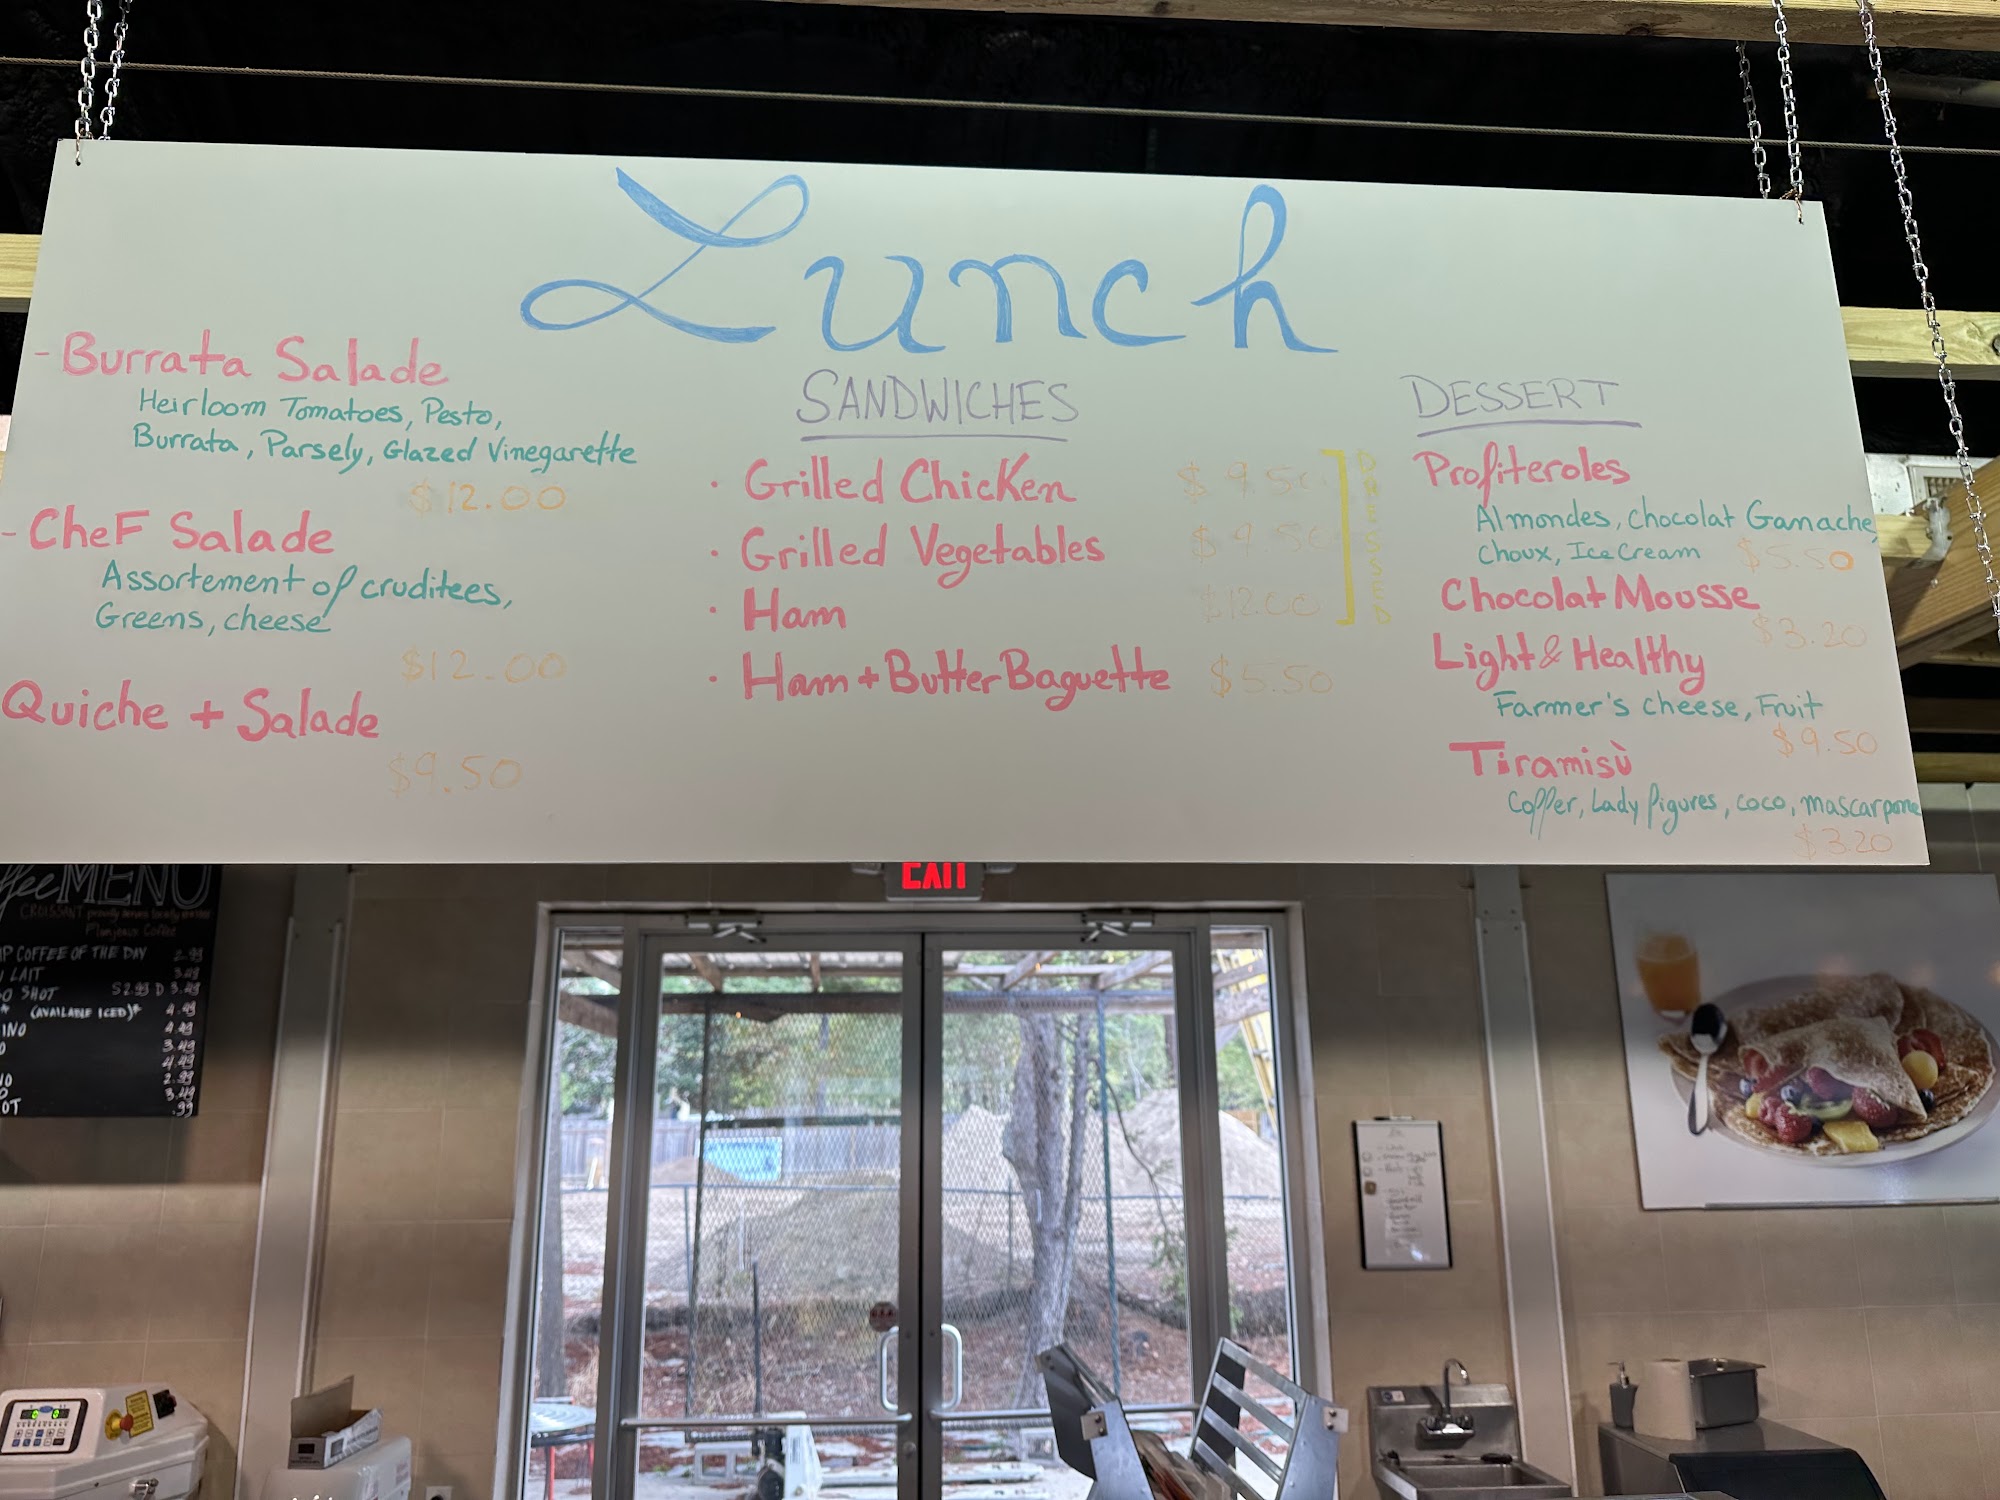 Lunch
- Burrata Salade
Heirloom Tomatoes, Pesto,
Burrata, Parsely, Glazed Vinegarette
$12.00
- CheF Salade
Assortement of cruditees,
Greens, cheese
$12.00
Quiche + Salade
$9.50
SANDWICHES
· Grilled Chicken $9.50
· Grilled Vegetables $9.50
· Ham $12.00
DRESSED
· Ham + Butter Baguette $5.50
DESSERT
Profiteroles
Almondes, Chocolat Ganache,
Choux, Ice Cream $5.50
Chocolat Mousse
$3.20
Light & Healthy
Farmer's cheese, Fruit
$9.50
Tiramisù
Coffer, Lady figures, coco, mascarpone
$3.20
EXIT
ffee MENU
CROISSANT proudly serves locally roasted
COFFEE OF THE DAY 2.99
LAIT 3.49
O SHOT S 2.99 D 3.49
* (AVAILABLE ICED)* 4.49
INO 4.49
O 3.49
4.49
NO 2.99
D 3.49
OT .99